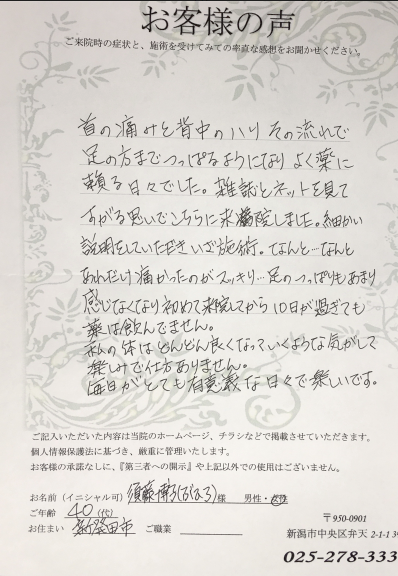 お客様の声
ご来院時の症状と、施術を受けてみての率直な感想をお聞かせください。
首の痛みと背中のハリ その流れで
足の方までつっぱるようになり よく薬に
頼る日々でした。雑誌とネットを見て
すがる思いでこちらに来院しました。細かい
説明をしていただき いざ施術。なんと…なんと
あれだけ痛かったのがスッキリ…足のつっぱりもあまり
感じなくなり 初めて来院してから10日が過ぎても
薬は飲んでません。
私の体はどんどん良くなっていくような気がして
楽しみで仕方ありません。
毎日がとても有意義な日々で楽しいです。
ご記入いただいた内容は当院のホームページ、チラシなどで掲載させていただきます。
個人情報保護法に基づき、厳重に管理いたします。
お客様の承諾なしに、『第三者への開示』や上記以外での使用はございません。
お名前（イニシャル可） 須藤 様 男性・女性
ご年齢 40（代）
お住まい 新発田市 ご職業
〒950-0901
新潟市中央区弁天 2-1-1
025-278-333